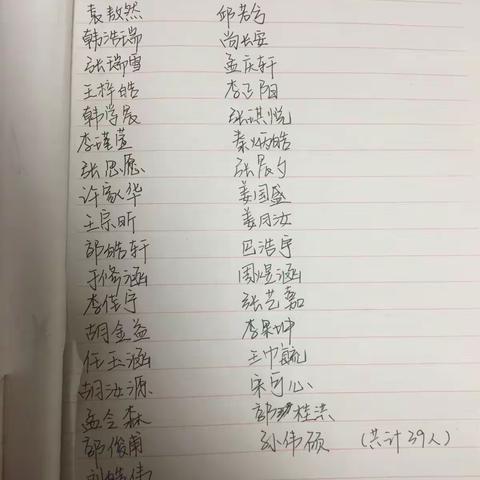 袁敖然 邱若兮
韩浩瑞 尚长安
张瑞雪 孟庆轩
王梓皓 李子阳
韩学晨 张琪悦
李瑾萱 秦炳皓
张思愿 张晨夕
许家华 姜国盛
王宗昕 姜月汝
郭皓轩 巴浩宇
于修涵 周煜涵
李佳宇 张艺嘉
胡金益 李果坤
任玉涵 王巾毓
胡汝源 宋可心
孟令森 郭桂洪
郭俊甫 孙伟硕 （共计39人）
刘皓伟